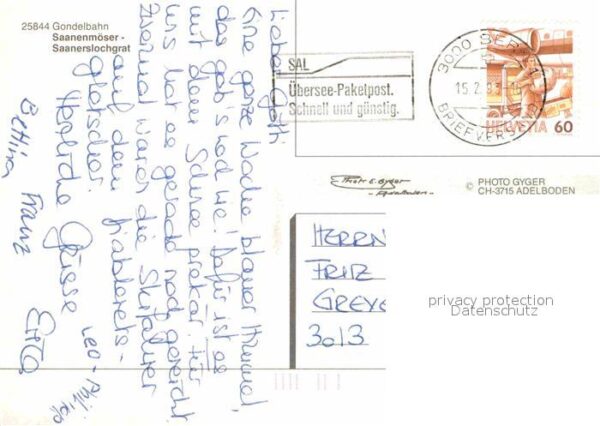 25844 Gondelbahn
Saanenmöser -
Saanerslochgrat
Lieber Götti
Eine ganze Woche blauer Himmel
das gab's noch nie! Dafür ist es
mit dem Schnee prekär. Für
uns hat es gerade noch gereicht.
Zweimal waren die Skifahrer
auf dem
Gletscher.
Herzliche Grüsse
Bettina Franz Leo-Philipp
SAL
Übersee-Paketpost.
Schnell und günstig.
3000 BERN
15.2.93
BRIEFVERS
HELVETIA 60
Photo E. Gyger
Adelboden
© PHOTO GYGER
CH-3715 ADELBODEN
HERRN
FRITZ
GREYE
3013
privacy protection
Datenschutz